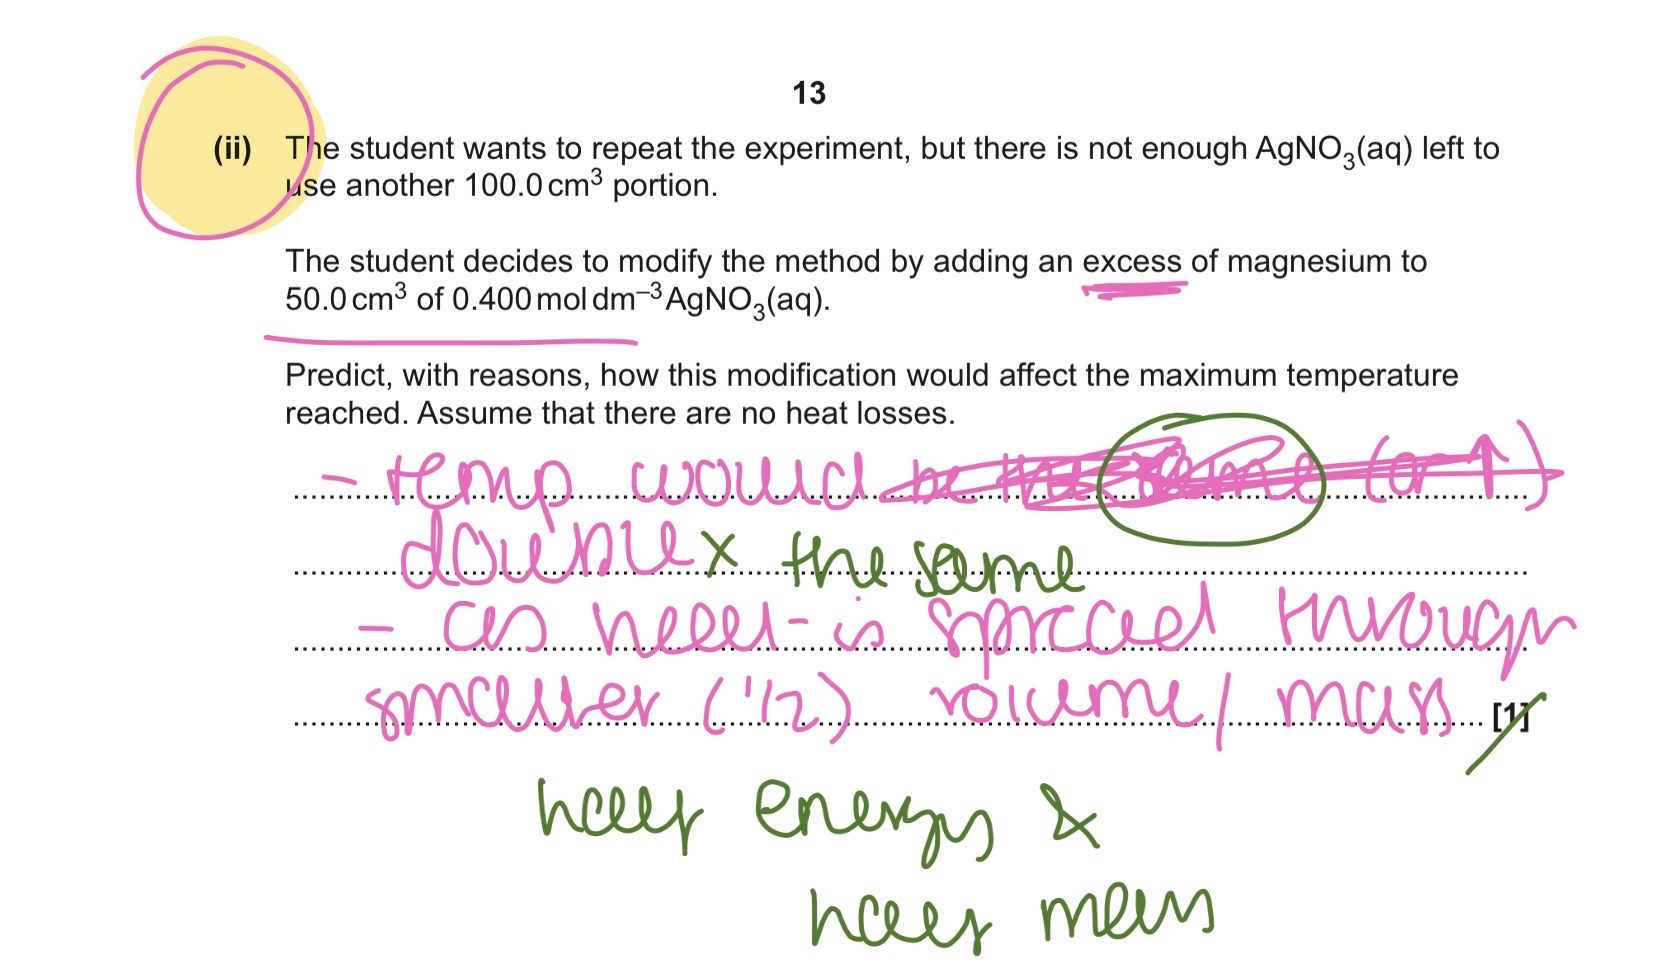 13
(ii) The student wants to repeat the experiment, but there is not enough AgNO₃(aq) left to
use another 100.0 cm³ portion.
The student decides to modify the method by adding an excess of magnesium to
50.0 cm³ of 0.400 mol dm⁻³ AgNO₃(aq).
Predict, with reasons, how this modification would affect the maximum temperature
reached. Assume that there are no heat losses.
- temp would be the same (or ↑)
double x the same
- as heat is spread through
smaller (1/2) volume/ mass [1]
half energy &
half mass